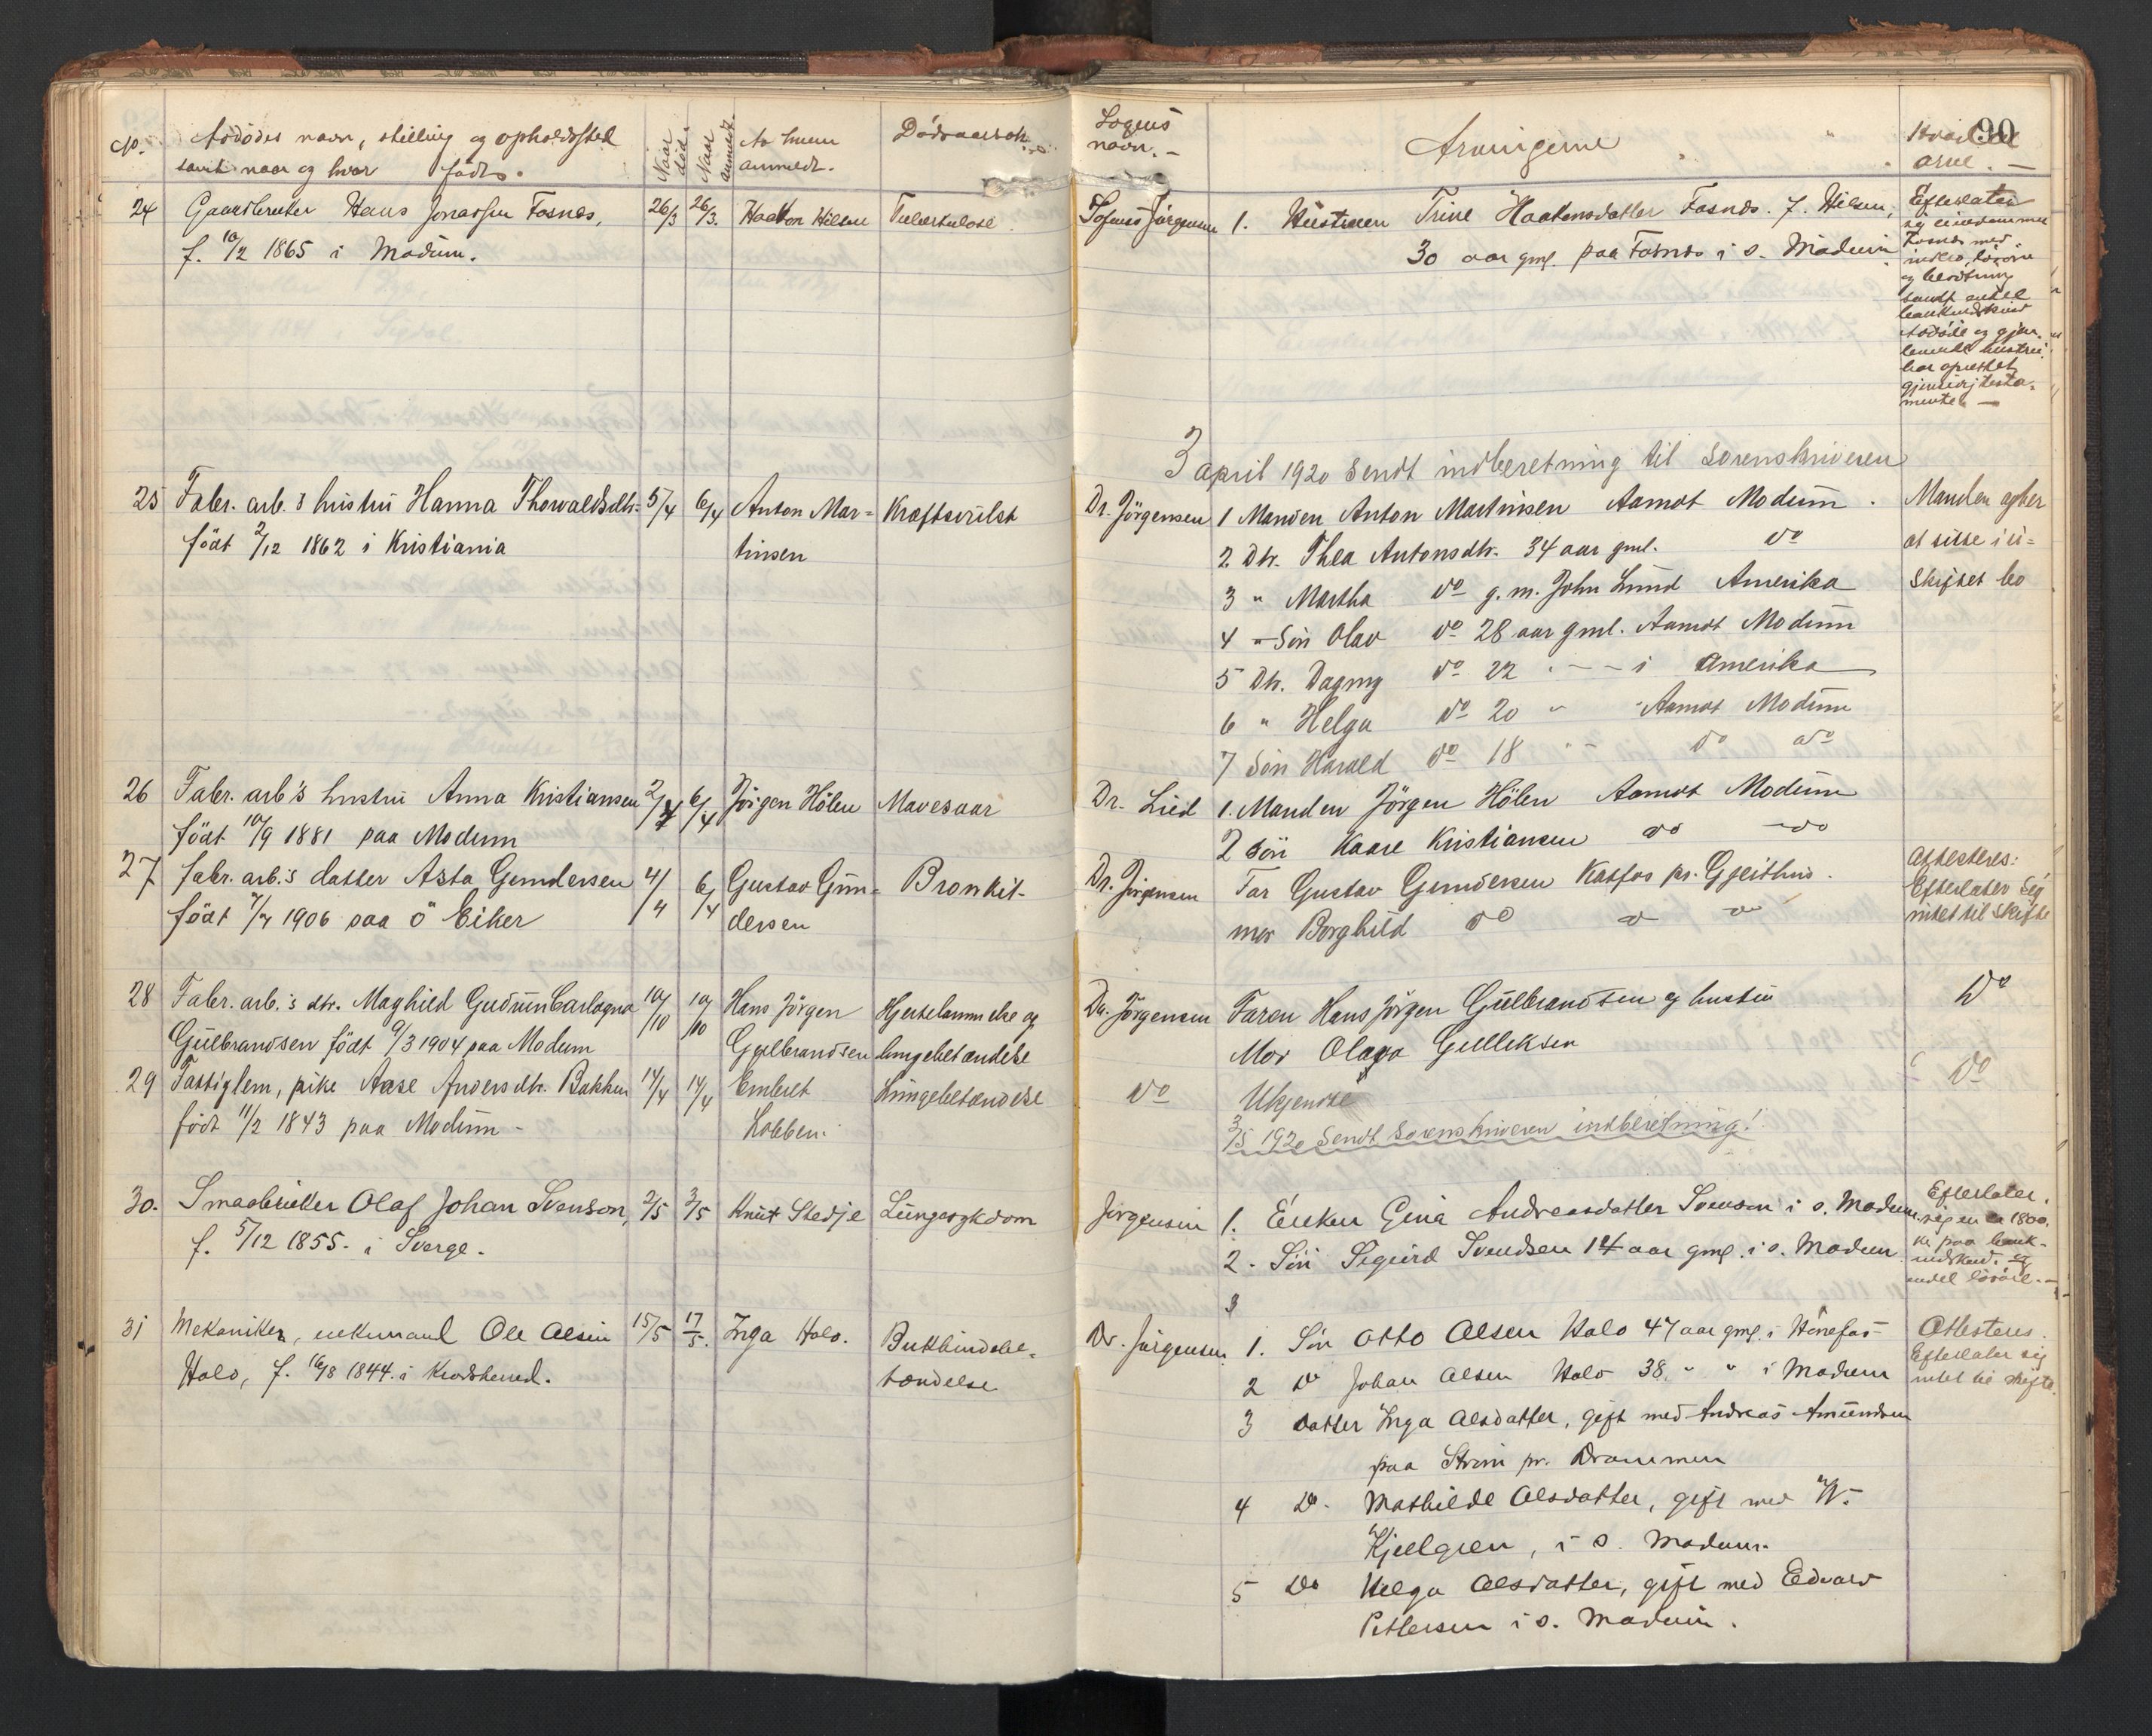 No. Avdödes navn, stilling og opholdssted
samt naar og hvor födt.
Naar död.
Naar anmeldt.
Av hvem
anmeldt.
Dödsaarsak
Lægens
navn.
Arvingerne
90
arve.
24 Gaardbruker Hans Jonassen Fosnæs, 26/3 26/3. Haakon Nilsen Tuberkulose
f. 10/2 1865 i Modum.
Jörgensen 1. Hustruen Trine Haakensdatter Fosnæs. f. Nilsen,
30 aar gml. paa Fosnæs i s. Modum
Efterlater
sig eiendommen
Fosnæs med
og besætning
samt endel
Avdöde og gjen-
levende hustru
har oprettet
gjensidig testa-
mente. —
3 april 1920 sendt indberetning til Sorenskriveren
25 Fabr. arb's hustru Hanna Thorvaldsdtr. 5/4 6/4 Anton Mar= Kræftsvulst
födt 2/12 1862 i Kristiania tinsen
Dr. Jörgensen 1 Manden Anton Martinsen Aamot Modum. Manden agter
2 Dtr. Thea Antonsdtr. 34 aar gml. do at sitte i u=
3 " Martha do g.m. John Lund Amerika skiftet bo
4 " Sön Olav do 28 aar gml. Aamot Modum
5 Dtr. Dagny do 22 " — i Amerika
6 " Helga do 20 " " Aamot Modum
7 Sön Harald do 18 " " do do
26 Fabr. arb's hustru Anna Kristiansen 2/4 6/4 Jörgen Hölen Mavesaar
födt 10/9 1881 paa Modum
Dr. Lied 1. Manden Jörgen Hölen Aamot Modum
2 Sön Kaare Kristiansen do do
27 fabr. arb.'s datter Asta Gundersen 4/4 6/4 Gustav Gun= Bronkit-
födt 7/4 1906 paa ö Eiker dersen
Dr. Jörgensen Far Gustav Gundersen Katfos pr. Gjeithus.
mor Borghild do do do
Attesteres:
Efterlater sig
intet til skifte
28 Fabr. arb.'s dtr. Maghild Gudrun 10/10 10/10 Hans Jörgen Hjertelammelse og
Gulbrandsen födt 9/3 1904 paa Modum Gulbrandsen lungebetændelse
Dr. Jörgensen Faren Hans Jörgen Gulbrandsen og hustru Do
Mor Olava Gulleksen
29 Fattiglem, pike Aase Andersdtr. Bakken 14/4 14/4 Embret Lungebetændelse
födt 11/2 1843 paa Modum - Kobben.
Do Ukjendte Do
3/5 1920 Sendt Sorenskriveren indberetning!
30. Smaabruker Olaf Johan Svenson, 2/5 3/5 Knut Stedje Lungesykdom
f. 5/12 1855. i Sverge.
Jörgensen 1. Enken Gina Andreasdatter Svenson i s. Modum
2. Sön Sigurd Svendsen 14 aar gml. i s. Modum
3
Efterlater
sig en ca 1800.
kr paa bank-
indskud. og
endel lösöre. —
31 Mekaniker, enkemand Ole Olsen 15/5 17/5. Inga Holo. Bukhindebe-
Holo, f. 16/8 1844. i Krödsherred. tændelse
Dr. Jörgensen 1. Sön Otto Olsen Holo 47 aar gml. i Hönefos
2 Do Johan Olsen Holo 38. " " i Modum
3 Datter Inga Olsdatter, gift med Andreas Amundsen
paa Ström pr. Drammen
4 Do. Mathilde Olsdatter, gift med W.
Kjellgren, i s. Modum.
5 Do Helga Olsdatter, gift med Edvard
Pettersen i s. Modum.
Attesteres.
Efterlater sig
intet til skifte.